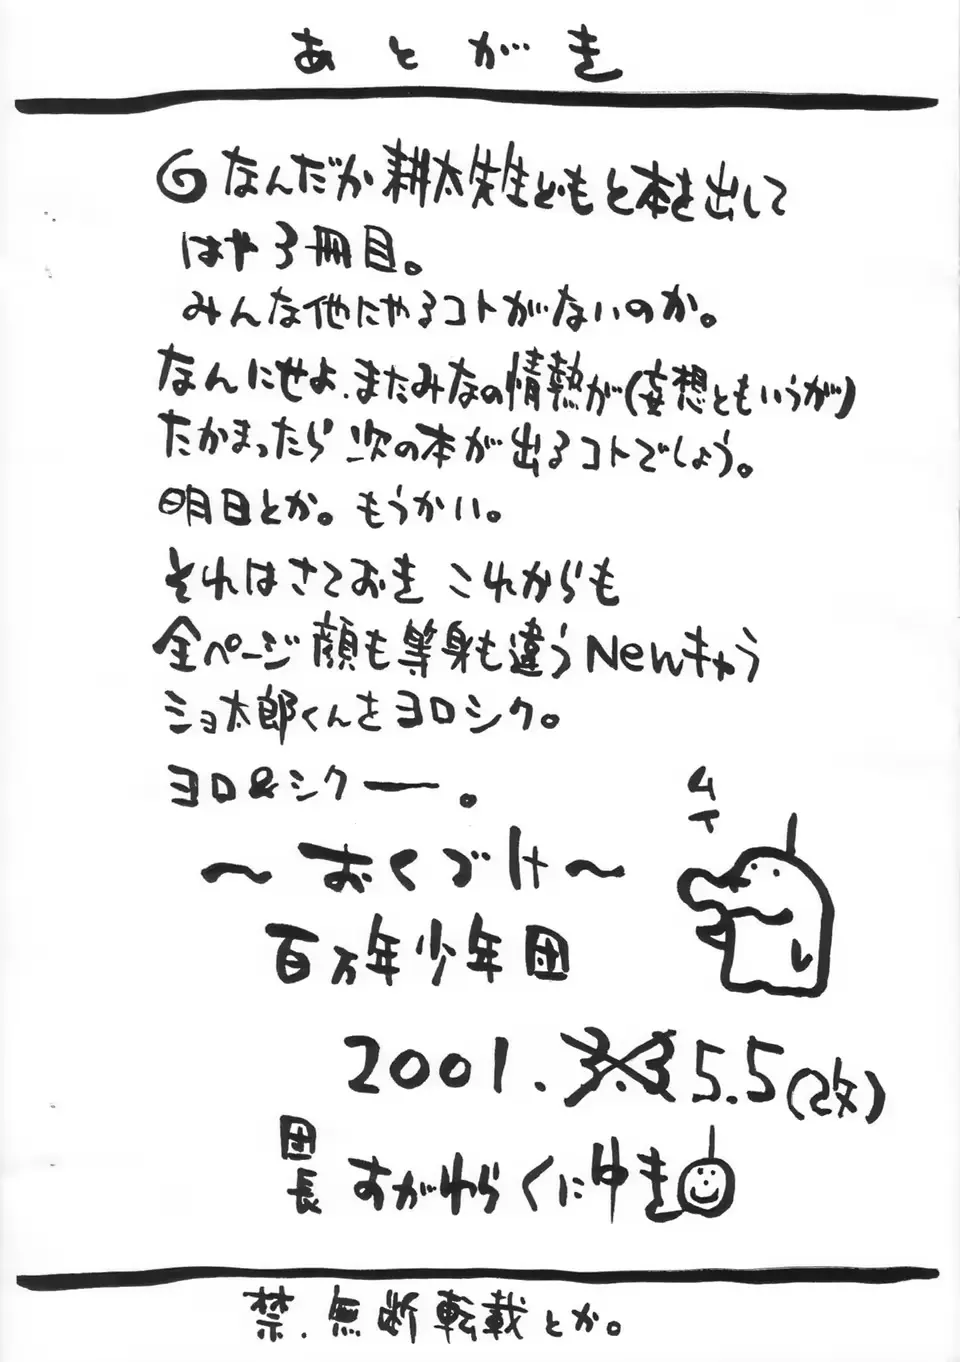 あとがき
なんだか耕太先生どもと本を出して
はや3冊目。
みんな他にやるコトがないのか。
なんにせよ、またみなの情熱が(妄想ともいうが)
たかまったら次の本が出るコトでしょう。
明日とか。もうかい。
それはさておき これからも
全ページ顔も等身も違うNewキャラ
ショ太郎くんをヨロシク。
ヨロ&シクー。
ムイ
～おくづけ～
百万年少年団
2001.3.3 5.5(改)
団長 すがわらくにゆき
禁、無断転載とか。